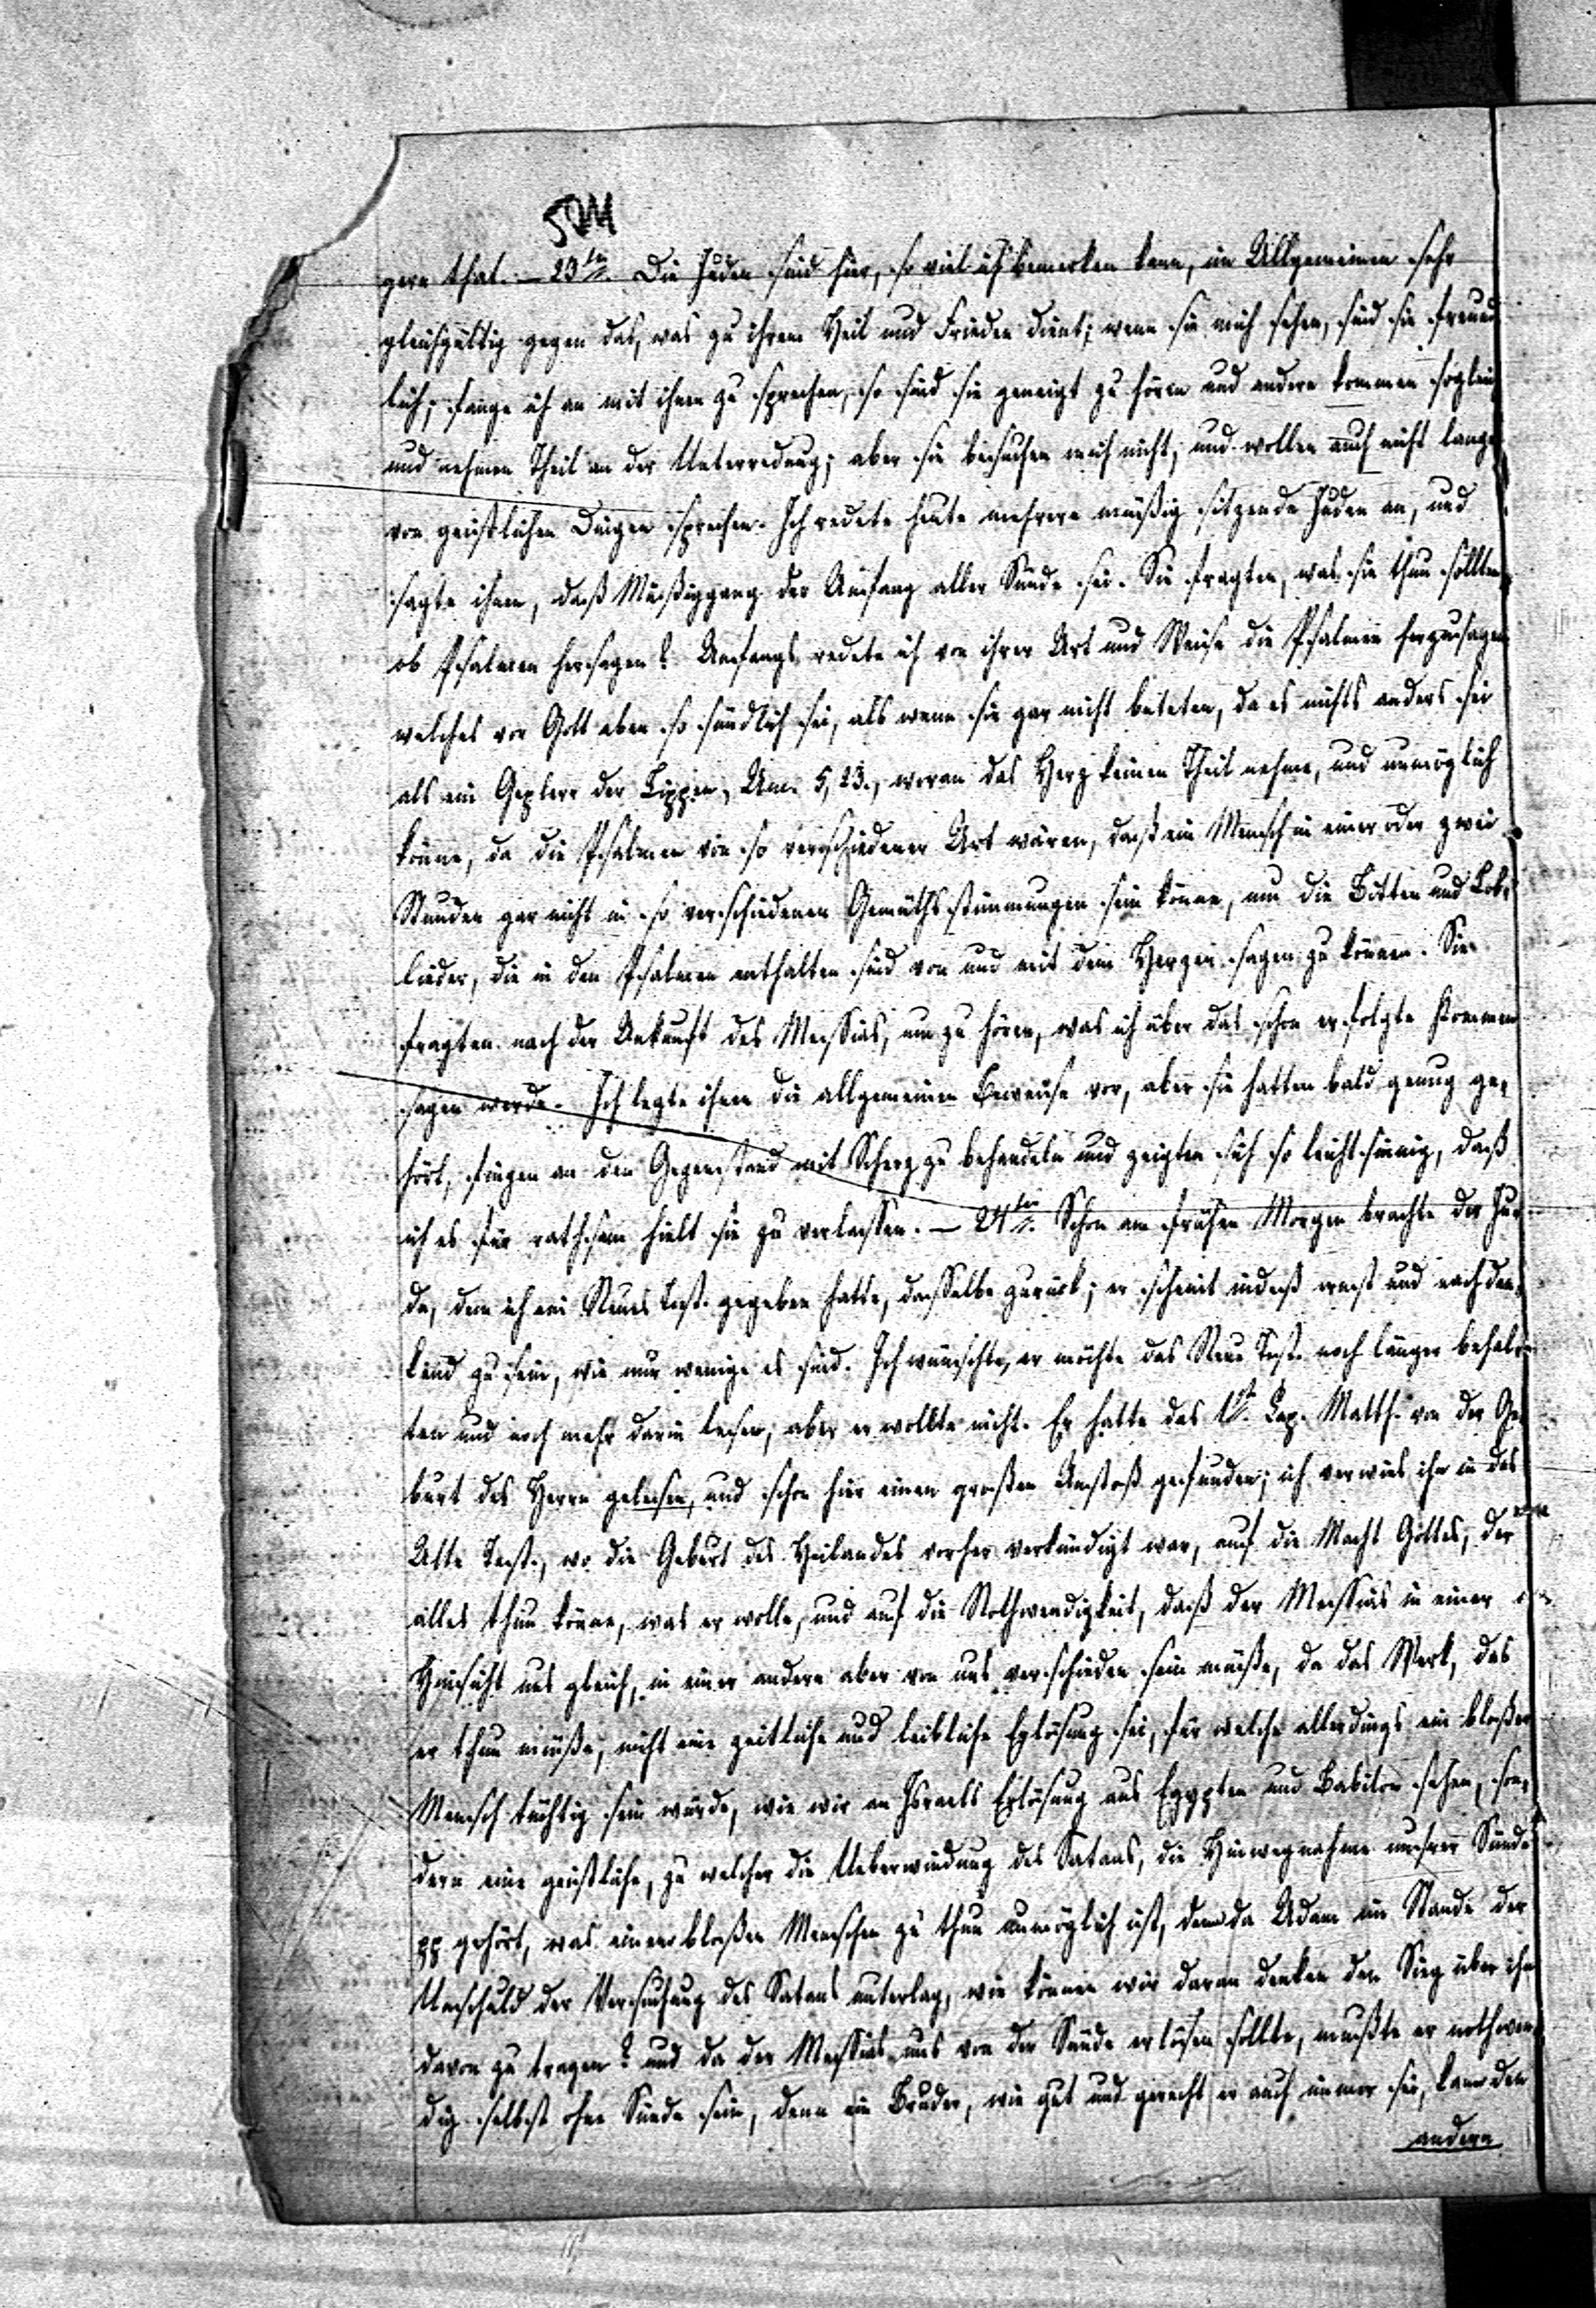 gern that. – 23ten. Die Juden sind hier, so viel ich bemerken kann, im Allgemeinen sehr
gleichgültig gegen das, was zu ihrem Heil und Frieden dient; wenn sie mich sehen, sind sie freund
lich; fange ich an mit ihnen zu sprechen, so sind sie geneigt zu hören und andere kommen sogleich
und nehmen Theil an der Unterredung; aber sie besuchen mich nicht, und wollen auch nicht lange
von geistlichen Dingen sprechen. Ich redete heute mehrere müßig sitzende Juden an, und
sagte ihnen, daß Müßiggang der Anfang aller Sünde sei. Sie fragten, was sie thun sollten,
ob Psalmen hersagen? Anfangs redete ich von ihrer Art und Weise die Psalmen herzusagen
welches vor Gott eben so sündlich sei, als wenn sie gar nicht beteten, da es nichts anders sei
als ein Geplerr der Lippen, Am. 5, 23., woran das Herz keinen Theil nehme, und unmöglich
könne, da die Psalmen von so verschiedener Art wären, daß ein Mensch in einer oder zwei
Stunden gar nicht in so verschiedenen Gemüthsstimmungen sein könne, um die Bitten und Lob-
lieder, die in den Psalmen enthalten sind von und mit dem Herzen sagen zu können. Sie
fragten nach der Ankunft des Messias, um zu hören, was ich über das schon erfolgte Kommen
sagen werde. Ich legte ihnen die allgemeinen Beweise vor, aber sie hatten bald genug ge-
hört, fingen an den Gegenstand mit Scherz zu behandeln und zeigten sich so leichtsinnig, daß
ich es für rathsam hielt sie zu verlassen. – 24ten. Schon am frühen Morgen brachte der Ju-
de, dem ich ein Neues Test. gegeben hatte, dasselbe zurück; er scheint indeß ernst und nachden-
kend zu sein, wie nur wenige es sind. Ich wünschte, er möchte das Neue Test. noch länger behal-
ten und noch mehr darin lesen, aber er wollte nicht. Er hatte das 1te Cap. Matth. von der Ge-
burt des Herrn gelesen, und schon hier einen großen Anstoß gefunden; ich verwies ihn in das
Alte Test., wo die Geburt des Heilandes vorher verkündigt war, auf die Macht Gottes, der
alles thun könne, was er wolle, und auf die Nothwendigkeit, daß der Messias in einer
Hinsicht uns gleich, in einer andern aber von uns verschieden sein müße, da das Werk, das
er thun müße, nicht eine zeitliche und leibliche Erlösung sei, für welche allerdings ein bloßer
Mensch tüchtig sein würde, wie wir an Israels Erlösung aus Egypten und Babilon sehen, son-
dern eine geistliche, zu welcher die Ueberwindung des Satans, die Hinwegnahme unsrer Sünde
pp gehört, was einem bloßen Menschen zu thun unmöglich ist, denn da Adam im Stande der
Unschuld der Versuchung des Satans unterlag, wie können wir daran denken den Sieg über ihn
davon zu tragen? und da der Messias uns von der Sünde erlösen sollte, mußte er nothwen-
dig selbst ohne Sünde sein, denn ein Bruder, wie gut und gerecht er auch immer sei, kann den
andern